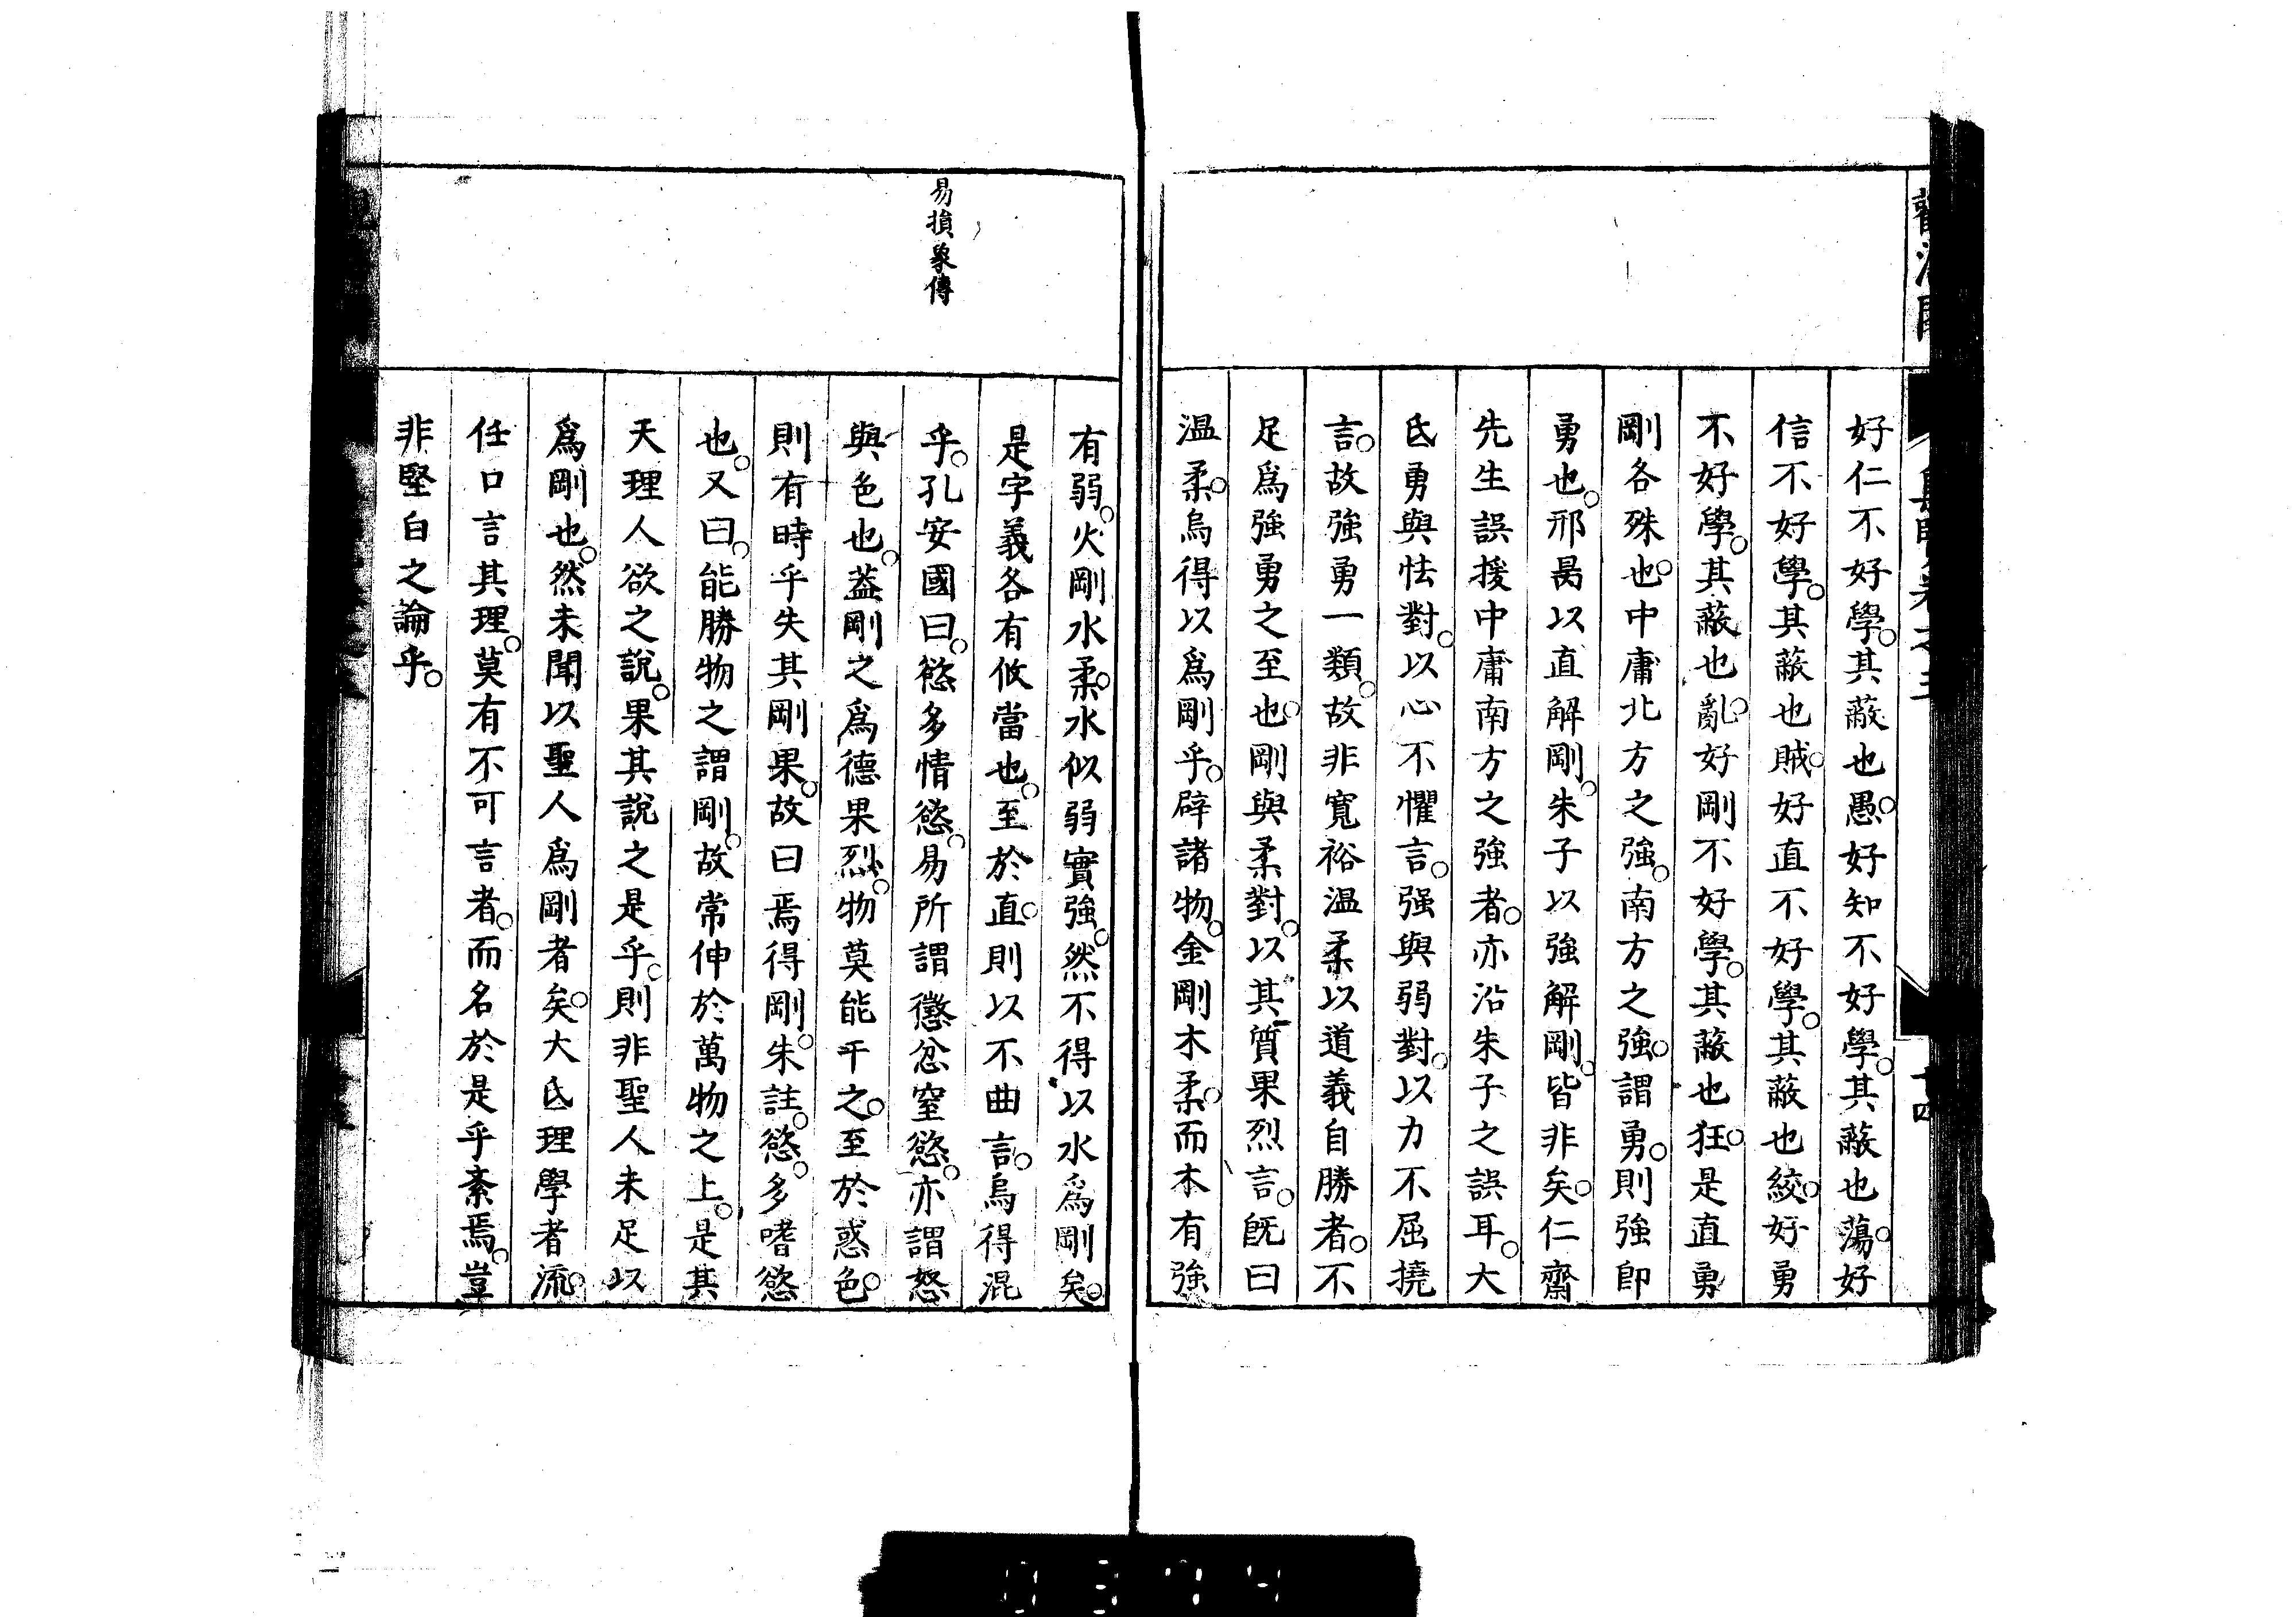 好仁不好學。其蔽也愚。好知不好學。其蔽也蕩。好
信不好學。其蔽也賊。好直不好學。其蔽也絞。好勇
不好學。其蔽也亂。好剛不好學。其蔽也狂。是直勇
剛各殊也。中庸北方之強。南方之強。謂勇。則強即
勇也。邢昺以直解剛。朱子以強解剛。皆非矣。仁齋
先生誤援中庸南方之強者。亦沿朱子之誤耳。大
氐勇與怯對。以心不懼言。强與弱對。以力不屈撓
言。故強勇一類。故非寬裕温柔以道義自勝者。不
足爲強勇之至也。剛與柔對。以其質果烈言。旣曰
温柔。烏得以爲剛乎。辟諸物。金剛木柔。而木有強
有弱。火剛水柔。水似弱實強。然不得以水爲剛矣。
是字義各有攸當也。至於直。則以不曲言。烏得混
乎。孔安國曰。慾多情慾。易所謂懲忿窒慾。亦謂怒
與色也。葢剛之爲德果烈。物莫能干之。至於惑色。
則有時乎失其剛果。故曰焉得剛。朱註。慾。多嗜慾
也。又曰。能勝物之謂剛。故常伸於萬物之上。是其
天理人欲之說。果其說之是乎。則非聖人未足以
爲剛也。然未聞以聖人爲剛者矣。大氐理學者流。
任口言其理。莫有不可言者。而名於是乎紊焉。豈
非堅白之論乎。
易損象傳
0374